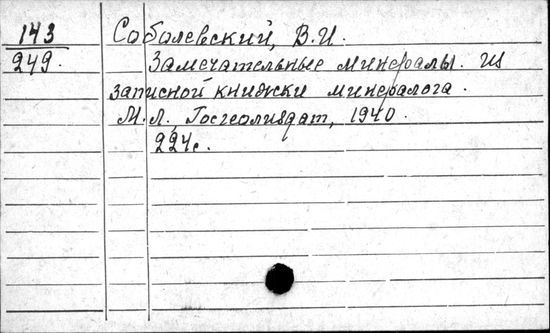 143
249.
Соболевский, В.И.
Замечательные минералы. из
записной книжки минералога.
М.Л, Госгеолиздат, 1940.
224с.